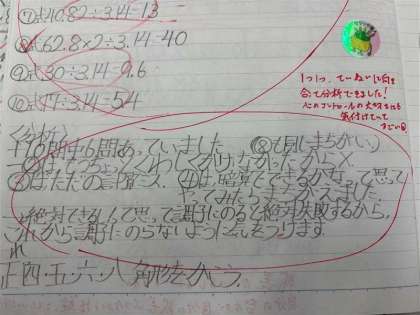 ⑦式40.82÷3.14=13
⑧式62.8×2÷3.14=40
⑨式30÷3.14=9.6
⑩式÷3.14=54
1つ1つ、ていねいに自分と向き
合って分析できました!
心のコントロールの大切さにも
気付けてって
すごい
<分析>
十問中六問あっていました
は、ちょっとくわしくかけなかったから×。
はただの計算ミス。④は暗算でできるかなって思って
やってみたらまちがえました。
→絶対できるしって思って調子にのると絶対失敗するから、
これから調子にのらないように気をつけます
れ
正四・五・六・八角形をかこう。